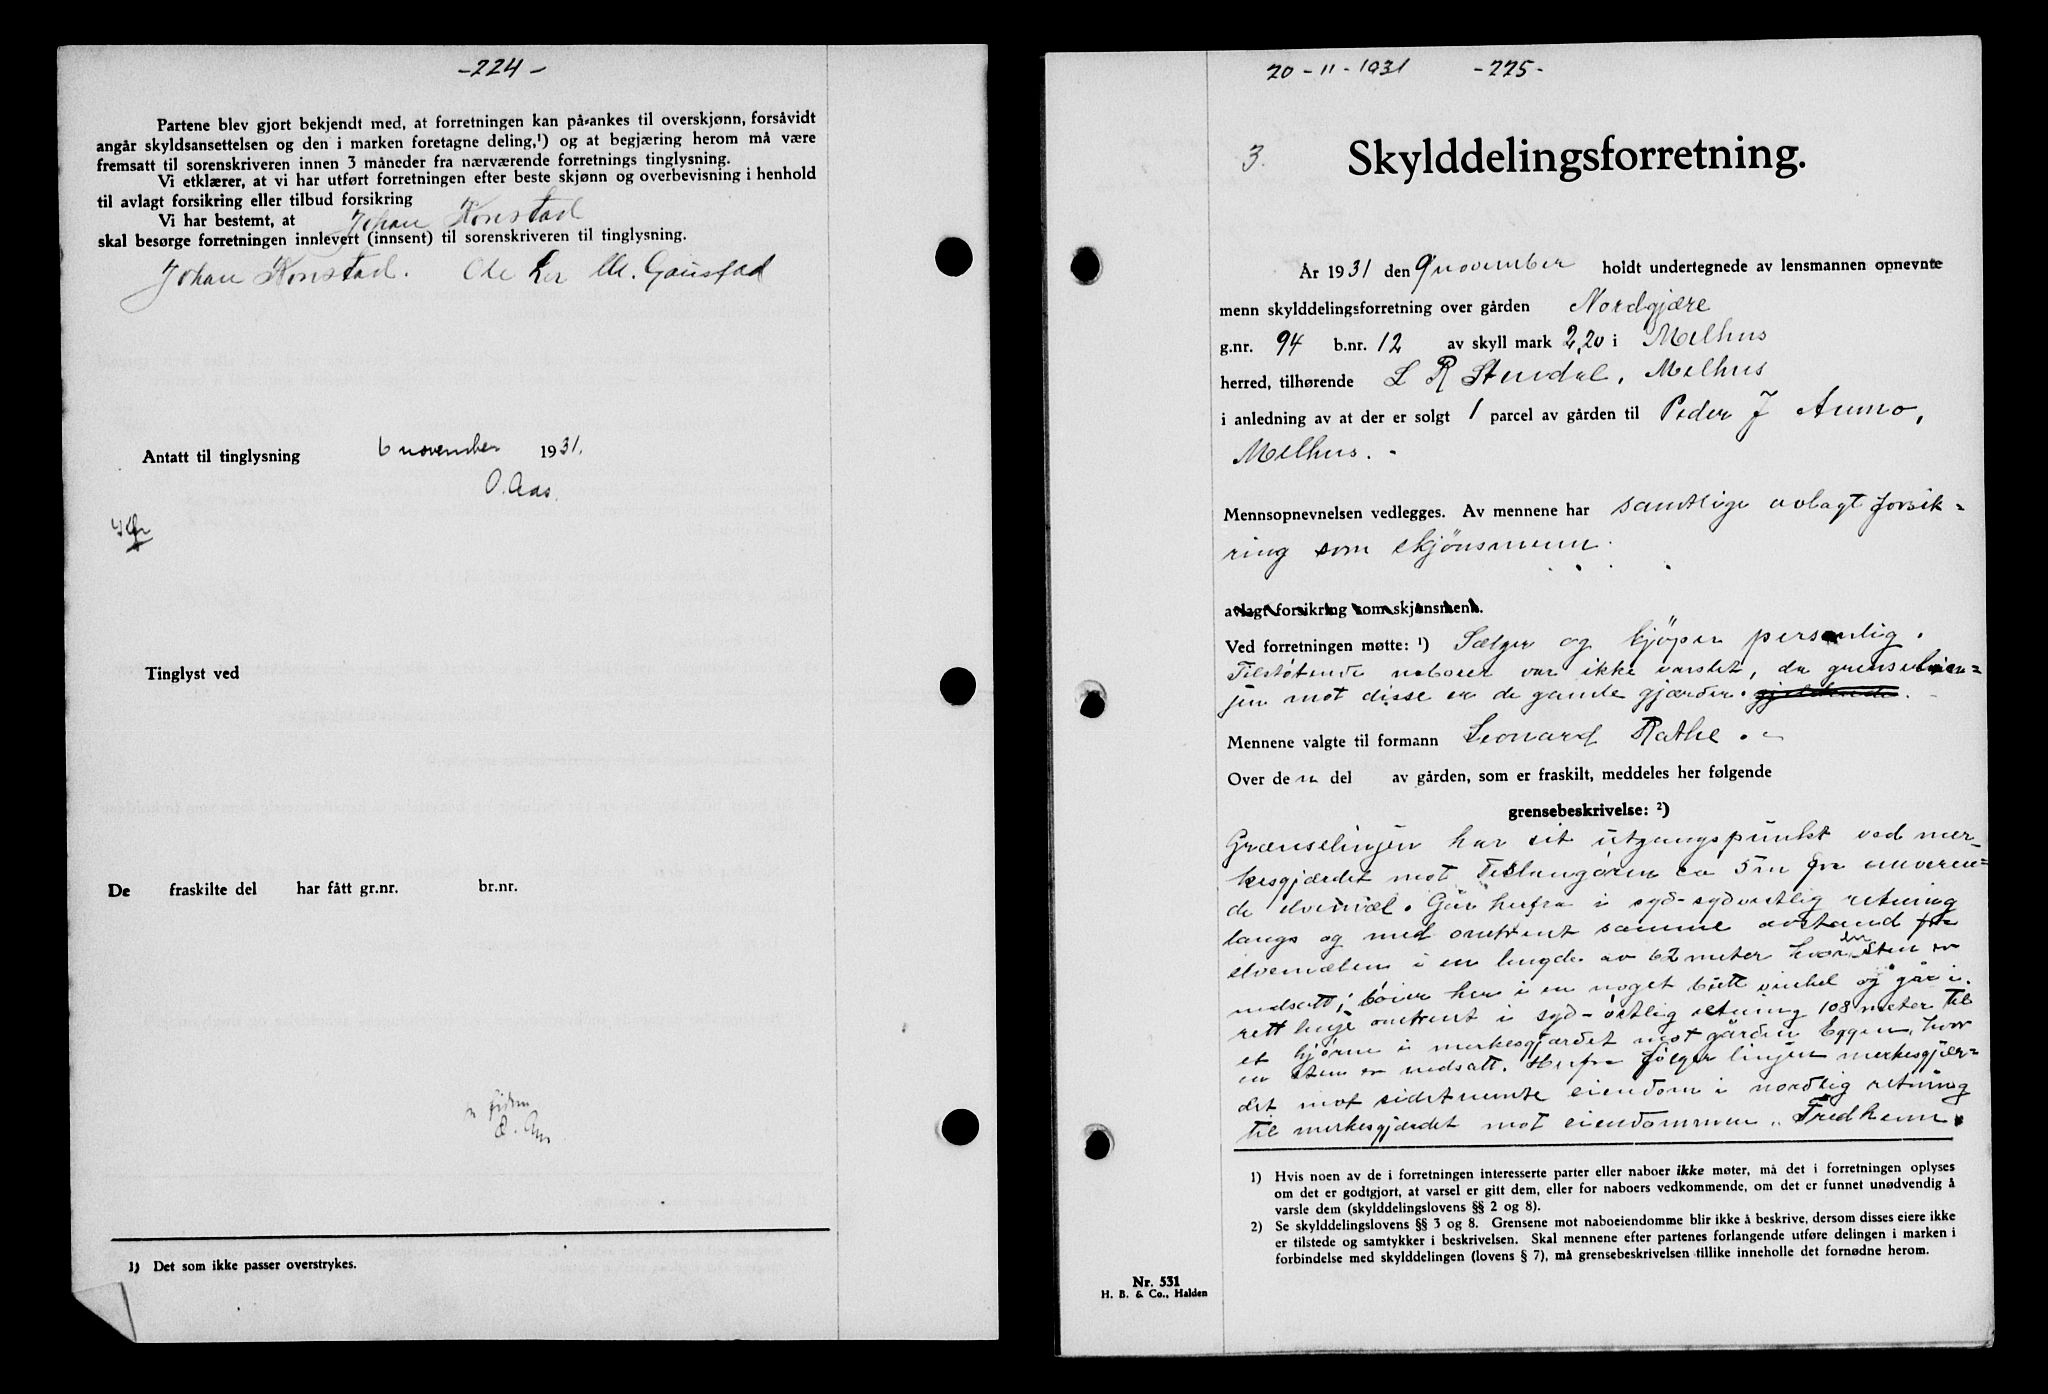 -224-
Partene blev gjort bekjendt med, at forretningen kan på-ankes til overskjønn, forsåvidt
angår skyldsansettelsen og den i marken foretagne deling,¹) og at begjæring herom må være
fremsatt til sorenskriveren innen 3 måneder fra nærværende forretnings tinglysning.
Vi etklærer, at vi har utført forretningen efter beste skjønn og overbevisning i henhold
til avlagt forsikring eller tilbud forsikring
Vi har bestemt, at Johan Konstad
skal besørge forretningen innlevert (innsent) til sorenskriveren til tinglysning.
Johan Konstad. Ole Ler M. Gaustad
Antatt til tinglysning 6 november 1931.
O. Aas.
Tinglyst ved
De fraskilte del har fått gr.nr. br.nr.
1) Det som ikke passer overstrykes.
20-11-1931 -225-
3. Skylddelingsforretning.
År 1931 den 9 november holdt undertegnede av lensmannen opnevnte
menn skylddelingsforretning over gården Nordgjære
g.nr. 94 b.nr. 12 av skyll mark 2,20 i Melhus
herred, tilhørende L R Stendal, Melhus
i anledning av at der er solgt 1 parcel av gården til Peder J Aunmo,
Melhus. -
Mennsopnevnelsen vedlegges. Av mennene har samtlige avlagt forsik-
ring som skjönsmenn.
avlagt forsikring som skjønsmenn.
Ved forretningen møtte: ¹) Sælger og kjöper personlig.
Tilstøtende naboer var ikke varslet, da grenselin-
jen mot disse er de gamle gjærder. gjeldende. -
Mennene valgte til formann Leonard Rathe. -
Over den del av gården, som er fraskilt, meddeles her følgende
grensebeskrivelse: ²)
Grænselinjen har sit utgangspunkt ved mer-
kesgjærdet mot Teslungören ca 5 m fra nuveren-
de elvemæl. Går herfra i syd-sydvestlig retning
langs og med omtrent samme avstand fra
elvemælen i en lengde av 62 meter hvor en sten er
nedsatt; böier her i en noget butt vinkel og går i
rett linje omtrent i syd-östlig retning 108 meter til
et hjörne i merkesgjærdet mot gården Eggen, hvor
en sten er nedsatt. Herfra fölger linjen merkesgjær-
det mot sidstnevnte eiendom i nordlig retning
til merkesgjærdet mot eiendommen „Fredheim.
1) Hvis noen av de i forretningen interesserte parter eller naboer ikke møter, må det i forretningen oplyses
om det er godtgjort, at varsel er gitt dem, eller for naboers vedkommende, om det er funnet unødvendig å
varsle dem (skylddelingslovens §§ 2 og 8).
2) Se skylddelingslovens §§ 3 og 8. Grensene mot naboeiendomme blir ikke å beskrive, dersom disses eiere ikke
er tilstede og samtykker i beskrivelsen. Skal mennene efter partenes forlangende utføre delingen i marken i
forbindelse med skylddelingen (lovens § 7), må grensebeskrivelsen tillike inneholle det fornødne herom.
Nr. 531
H. B. & Co., Halden